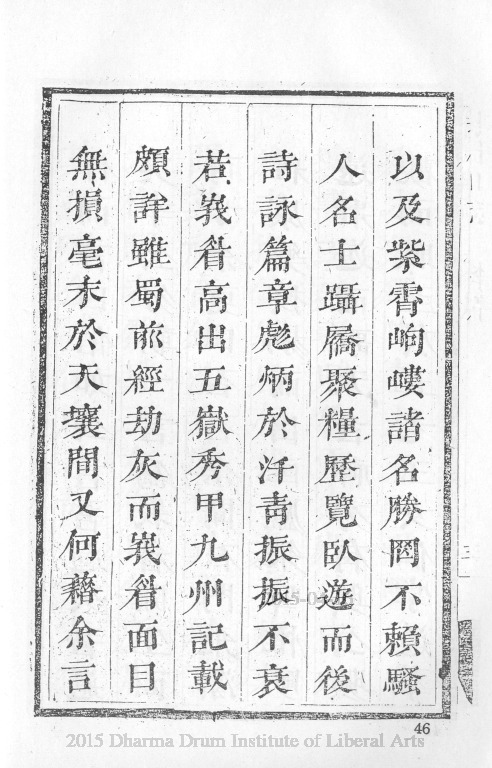 以及紫霄岣嶁諸名勝罔不賴騷
人名士躡屩聚糧歷覽臥遊而後
詩詠篇章彪炳於汗青振振不衰
若峩眉高出五嶽秀甲九州記載
頗詳雖蜀前經劫灰而峩眉面目
無損毫末於天壤間又何藉余言
46
2015 Dharma Drum Institute of Liberal Arts